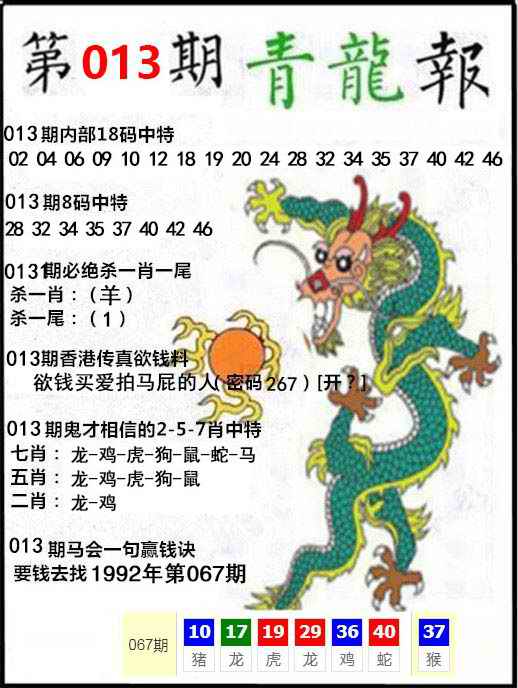 第013期青龍報
013期内部18码中特
02 04 06 09 10 12 18 19 20 24 28 32 34 35 37 40 42 46
013期8码中特
28 32 34 35 37 40 42 46
013期必绝杀一肖一尾
杀一肖：（羊）
杀一尾：（1）
013期香港传真欲钱料
欲钱买爱拍马屁的人（密码267）[开？]
013期鬼才相信的2-5-7肖中特
七肖：龙-鸡-虎-狗-鼠-蛇-马
五肖：龙-鸡-虎-狗-鼠
二肖：龙-鸡
013期马会一句赢钱诀
要钱去找1992年第067期
067期 10 17 19 29 36 40 37
猪 龙 虎 龙 鸡 蛇 猴